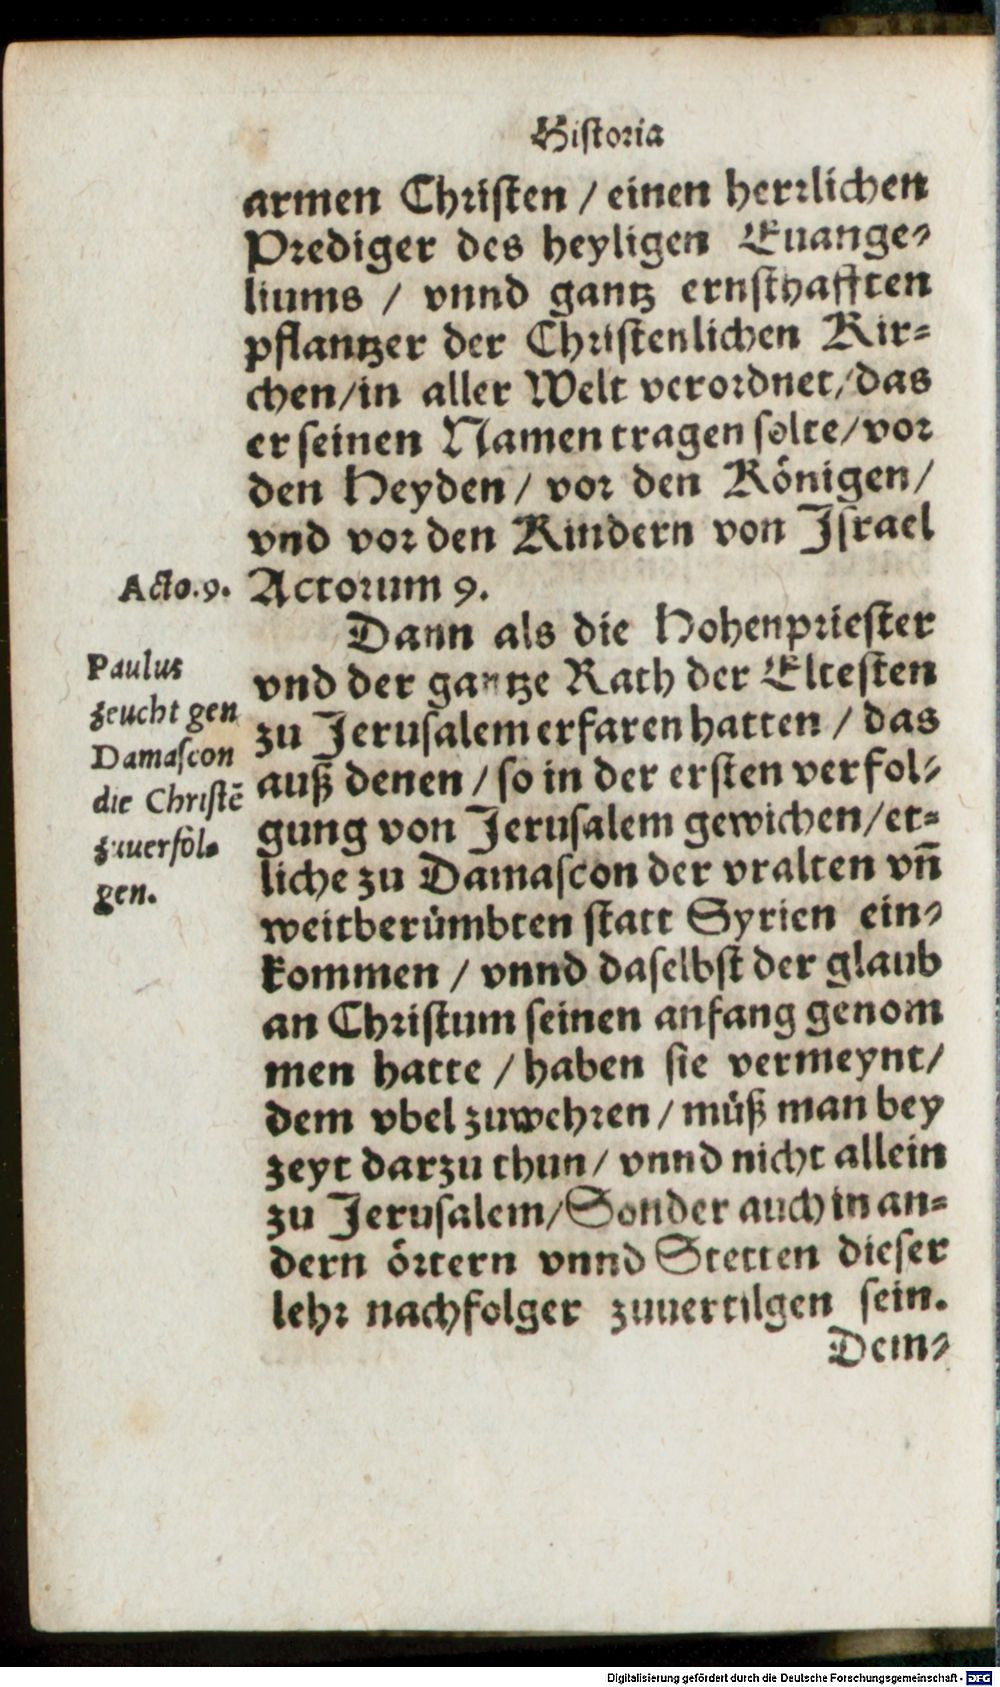 Historia
armen Christen / einen herrlichen
Prediger des heyligen Euange⸗
liums / vnnd gantz ernsthafften
pflantzer der Christenlichen Kir⸗
chen/in aller Welt verordnet/das
er seinen Namen tragen solte/vor
den Heyden/ vor den Königen/
vnd vor den Kindern von Israel
Acto.9.
Actorum 9.
Dann als die Hohenpriester
Paulus
zeucht gen
Damascon
die Christē
zuuerfol⸗
gen.
vnd der gantze Rath der Eltesten
zu Jerusalem erfaren hatten / das
auß denen / so in der ersten verfol⸗
gung von Jerusalem gewichen/et⸗
liche zu Damascon der vralten vn̄
weitberümbten statt Syrien ein⸗
kommen / vnnd daselbst der glaub
an Christum seinen anfang genom
men hatte / haben sie vermeynt/
dem vbel zuwehren / müß man bey
zeyt darzu thun/ vnnd nicht allein
zu Jerusalem/Sonder auch in an⸗
dern örtern vnnd Stetten dieser
lehr nachfolger zuuertilgen sein.
Dem⸗
Digitalisierung gefördert durch die Deutsche Forschungsgemeinschaft - DFG